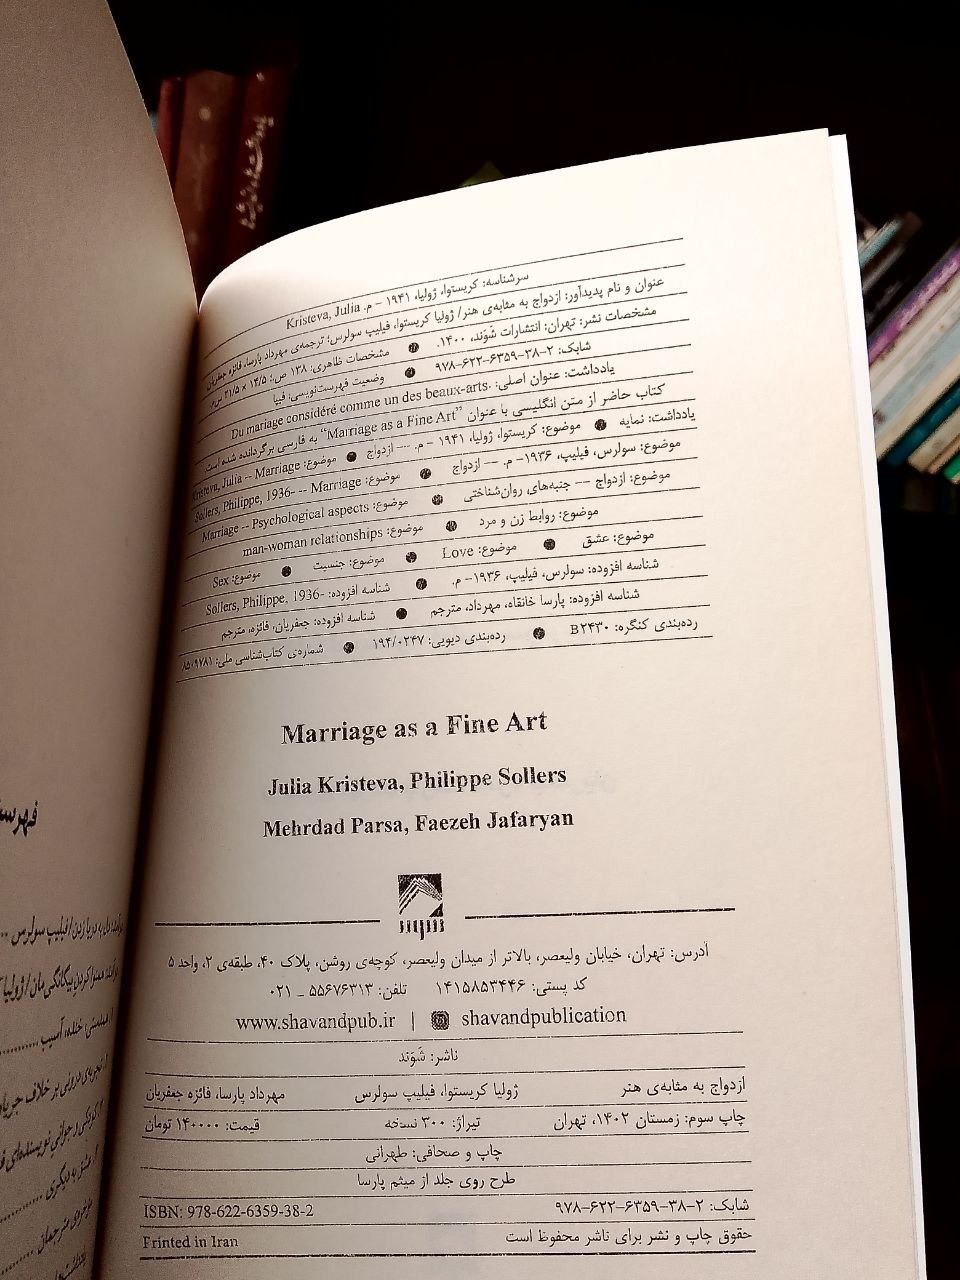 سرشناسه: کریستوا، ژولیا، ۱۹۴۱ - م. Kristeva, Julia
عنوان و نام پدیدآور: ازدواج به مثابه‌ی هنر/ ژولیا کریستوا، فیلیپ سولرس؛ ترجمه‌ی مهرداد پارسا، فائزه جعفریان
مشخصات نشر: تهران: انتشارات شَوَند، ۱۴۰۰. ● مشخصات ظاهری: ۱۳۸ ص.؛ ۱۴/۵ × ۲۱/۵ س‌م.
شابک: ۲-۳۸-۶۳۵۹-۶۲۲-۹۷۸ ● وضعیت فهرست‌نویسی: فیپا
یادداشت: عنوان اصلی: Du mariage considéré comme un des beaux-arts.
کتاب حاضر از متن انگلیسی با عنوان “Marriage as a Fine Art” به فارسی برگردانده شده است.
یادداشت: نمایه ● موضوع: کریستوا، ژولیا، ۱۹۴۱ - م. -- ازدواج ● موضوع: Kristeva, Julia -- Marriage
موضوع: سولرس، فیلیپ، ۱۹۳۶- م. -- ازدواج ● موضوع: Sollers, Philippe, 1936- -- Marriage
موضوع: ازدواج -- جنبه‌های روان‌شناختی ● موضوع: Marriage -- Psychological aspects
موضوع: روابط زن و مرد ● موضوع: man-woman relationships
موضوع: عشق ● موضوع: Love ● موضوع: جنسیت ● موضوع: Sex
شناسه افزوده: سولرس، فیلیپ، ۱۹۳۶- م. ● شناسه افزوده: Sollers, Philippe, 1936-
شناسه افزوده: پارسا خانقاه، مهرداد، مترجم ● شناسه افزوده: جعفریان، فائزه، مترجم
رده‌بندی کنگره: B۲۴۳۰ ● رده‌بندی دیویی: ۱۹۴/۰۲۴۷ ● شماره‌ی کتاب‌شناسی ملی: ۸۵۰۹۷۸۱
Marriage as a Fine Art
Julia Kristeva, Philippe Sollers
Mehrdad Parsa, Faezeh Jafaryan
شوند
آدرس: تهران، خیابان ولیعصر، بالاتر از میدان ولیعصر، کوچه‌ی روشن، پلاک ۴۰، طبقه‌ی ۲، واحد ۵
کد پستی: ۱۴۱۵۸۵۳۴۴۶ تلفن: ۵۵۶۷۶۳۱۳ - ۰۲۱
www.shavandpub.ir | shavandpublication
ناشر: شَوَند
ازدواج به مثابه‌ی هنر ژولیا کریستوا، فیلیپ سولرس مهرداد پارسا، فائزه جعفریان
چاپ سوم: زمستان ۱۴۰۲، تهران تیراژ: ۳۰۰ نسخه قیمت: ۱۴۰۰۰۰ تومان
چاپ و صحافی: طهرانی
طرح روی جلد از میثم پارسا
شابک: ۲-۳۸-۶۳۵۹-۶۲۲-۹۷۸ ISBN: 978-622-6359-38-2
حقوق چاپ و نشر برای ناشر محفوظ است Printed in Iran